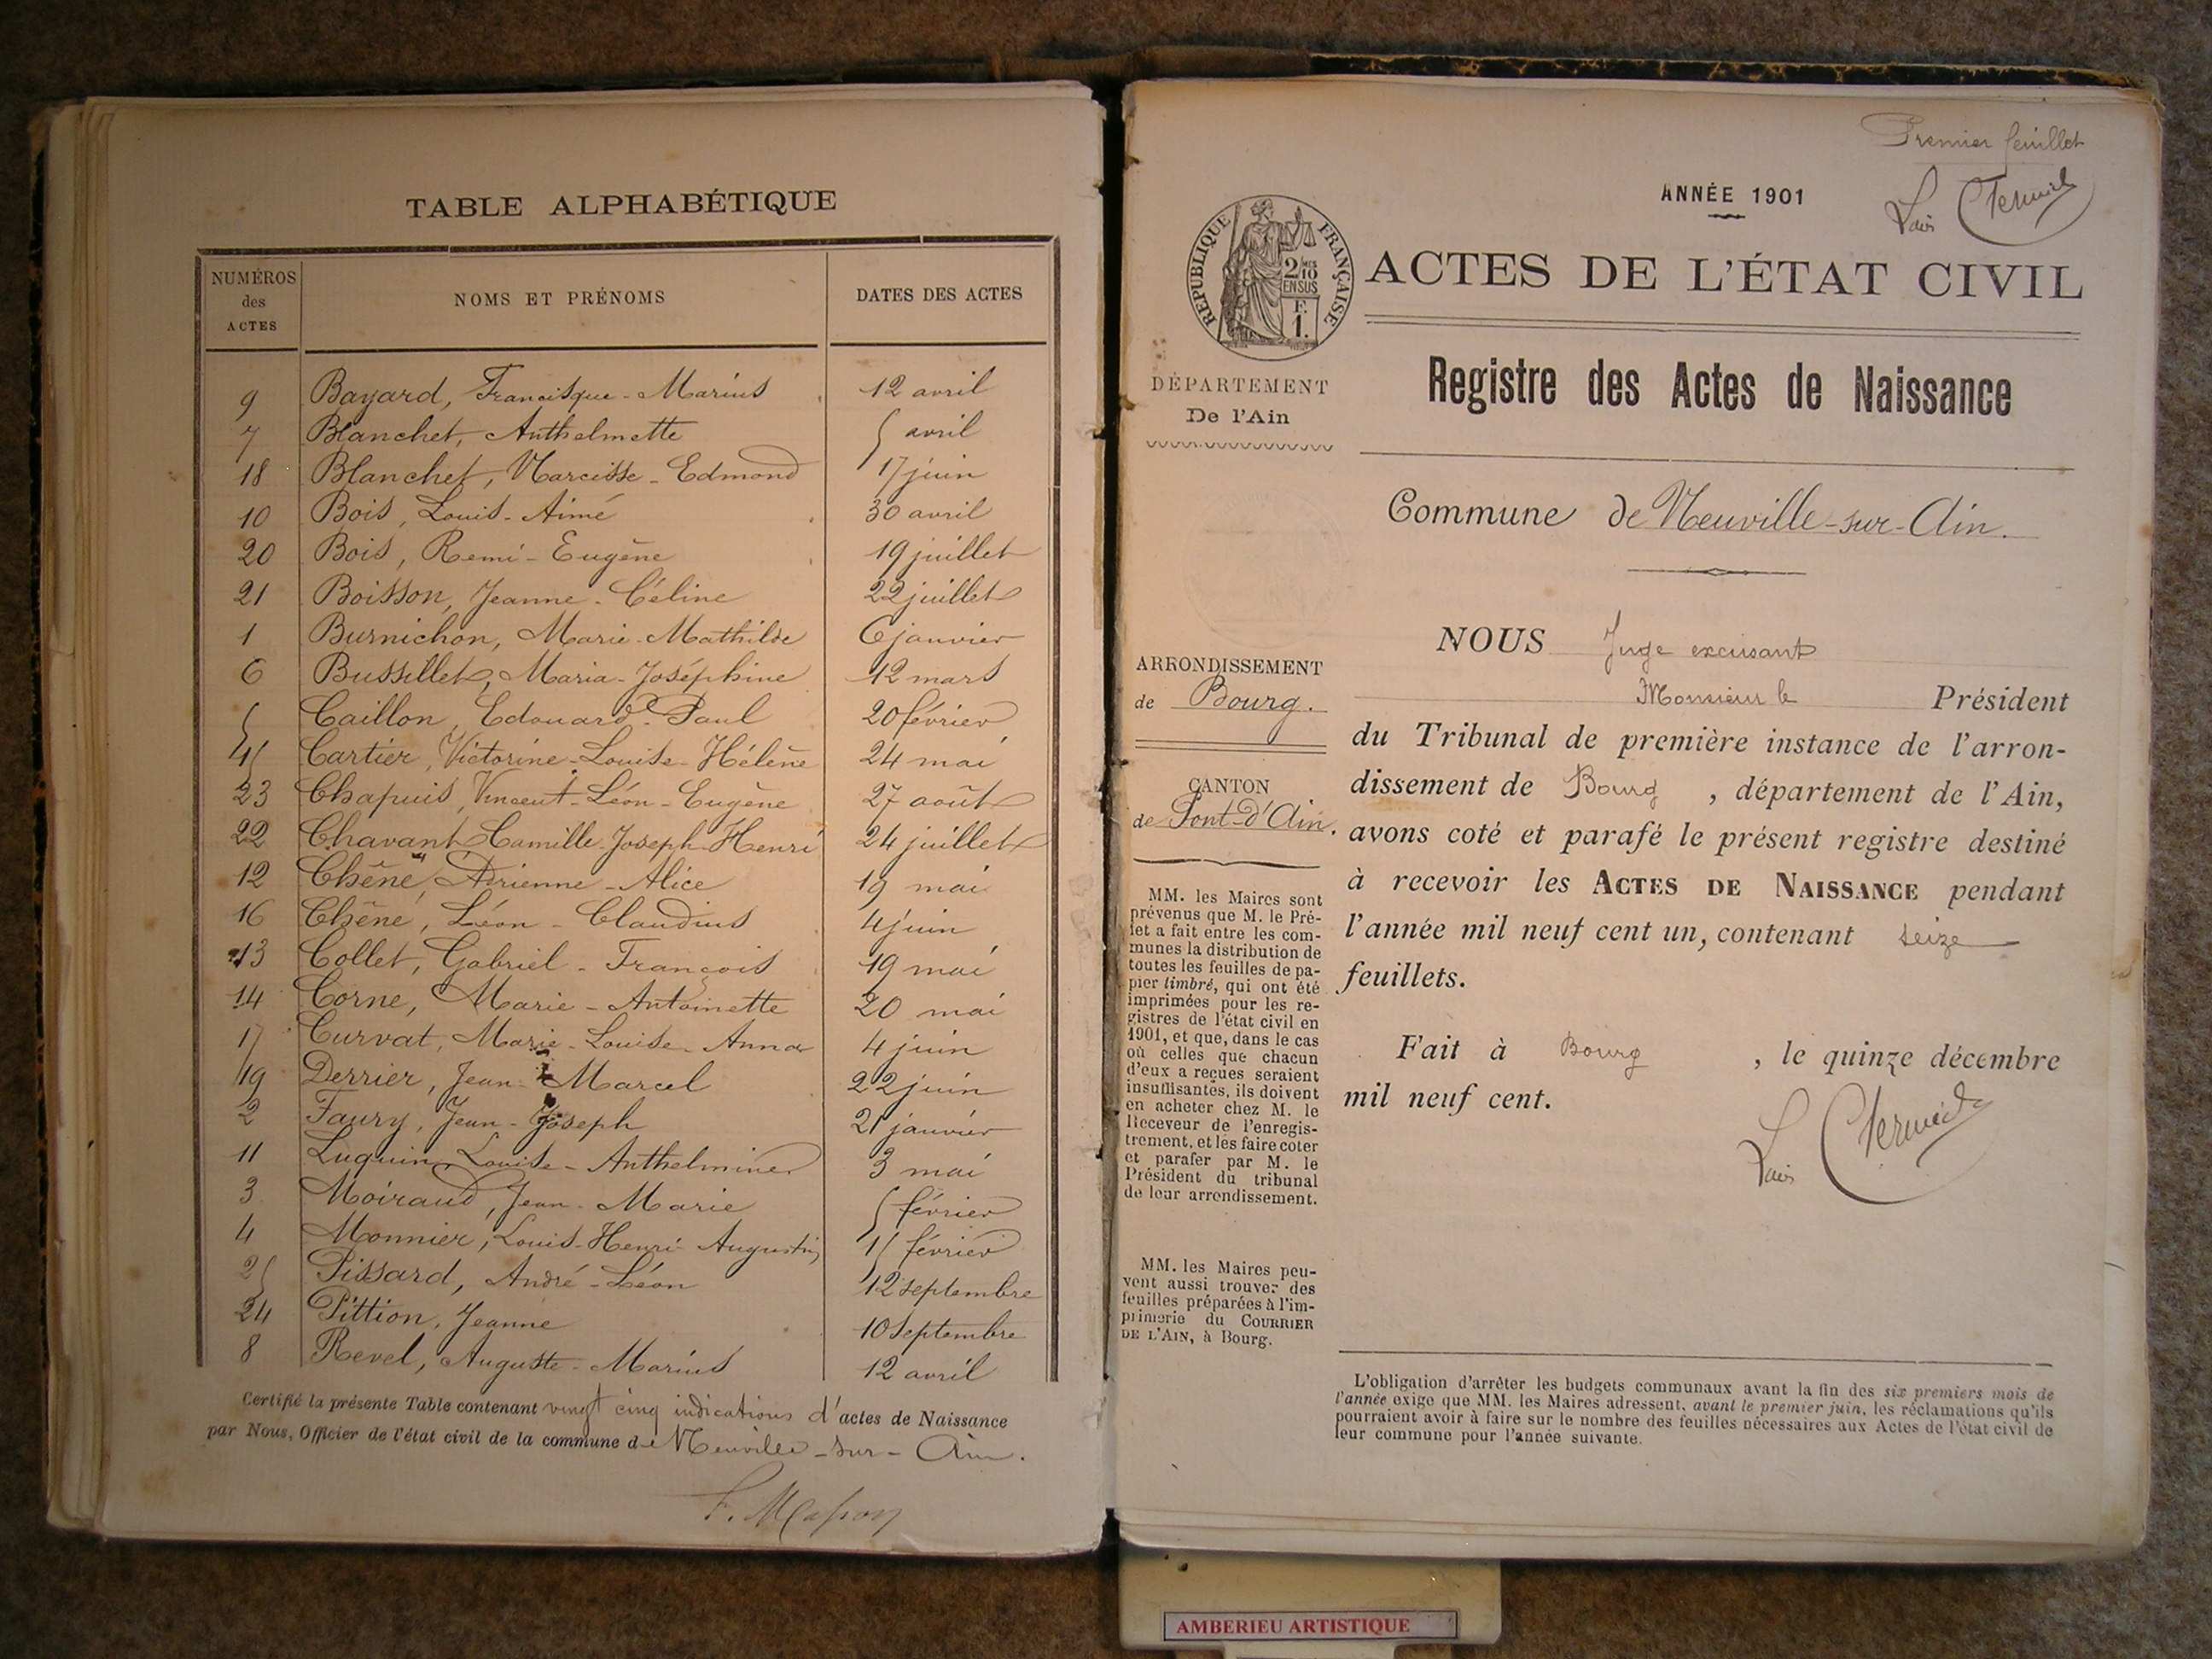 TABLE ALPHABÉTIQUE
NUMÉROS des ACTES NOMS ET PRÉNOMS DATES DES ACTES
9 Bayard, Francisque-Marius 12 avril
7 Blanchet, Anthelmette 5 avril
18 Blanchet, Narcisse-Edmond 17 juin
10 Bois, Louis-Aimé 30 avril
20 Bois, Remi-Eugène 19 juillet
21 Boisson, Jeanne-Céline 22 juillet
1 Burnichon, Marie-Mathilde 6 janvier
6 Bussillet, Maria-Joséphine 12 mars
5 Caillon, Edouard-Paul 20 février
15 Cartier, Victorine-Louise-Hélène 24 mai
23 Chapuis, Vincent-Léon-Eugène 27 août
22 Chavant Camille-Joseph-Henri 24 juillet
12 Chêne, Adrienne-Alice 19 mai
16 Chêne, Léon-Claudius 4 juin
13 Collet, Gabriel-François 19 mai
14 Corne, Marie-Antoinette 20 mai
17 Curvat, Marie-Louise-Anna 4 juin
19 Derrier, Jean-Marcel 22 juin
2 Faury, Jean-Joseph 21 janvier
11 Luquin, Louise-Anthelmine 3 mai
3 Moiraud, Jean-Marie 5 février
4 Monnier, Louis-Henri-Augustin 15 février
25 Pissard, André-Léon 12 septembre
24 Pittion, Jeanne 10 septembre
8 Revel, Auguste-Marius 12 avril
Certifié la présente Table contenant vingt cinq indications d'actes de Naissance
par Nous, Officier de l'état civil de la commune de Neuville-sur-Ain.
Premier feuillet
ANNÉE 1901
RÉPUBLIQUE FRANÇAISE
2/10 MES
EN SUS
F.
1.
ACTES DE L'ÉTAT CIVIL
DÉPARTEMENT
De l'Ain
Registre des Actes de Naissance
Commune de Neuville-sur-Ain.
ARRONDISSEMENT
de Bourg.
CANTON
de Pont-d'Ain.
MM. les Maires sont
prévenus que M. le Pré-
fet a fait entre les com-
munes la distribution de
toutes les feuilles de pa-
pier timbré, qui ont été
imprimées pour les re-
gistres de l'état civil en
1901, et que, dans le cas
où celles que chacun
d'eux a reçues seraient
insuffisantes, ils doivent
en acheter chez M. le
Receveur de l'enregis-
trement, et les faire coter
et parafer par M. le
Président du tribunal
de leur arrondissement.
MM. les Maires peu-
vent aussi trouver des
feuilles préparées à l'im-
primerie du COURRIER
DE L'AIN, à Bourg.
NOUS Juge excusant
Monsieur le Président
du Tribunal de première instance de l'arron-
dissement de Bourg, département de l'Ain,
avons coté et parafé le présent registre destiné
à recevoir les ACTES DE NAISSANCE pendant
l'année mil neuf cent un, contenant seize
feuillets.
Fait à Bourg, le quinze décembre
mil neuf cent.
L'obligation d'arrêter les budgets communaux avant la fin des six premiers mois de
l'année exige que MM. les Maires adressent, avant le premier juin, les réclamations qu'ils
pourraient avoir à faire sur le nombre des feuilles nécessaires aux Actes de l'état civil de
leur commune pour l'année suivante.
AMBERIEU ARTISTIQUE